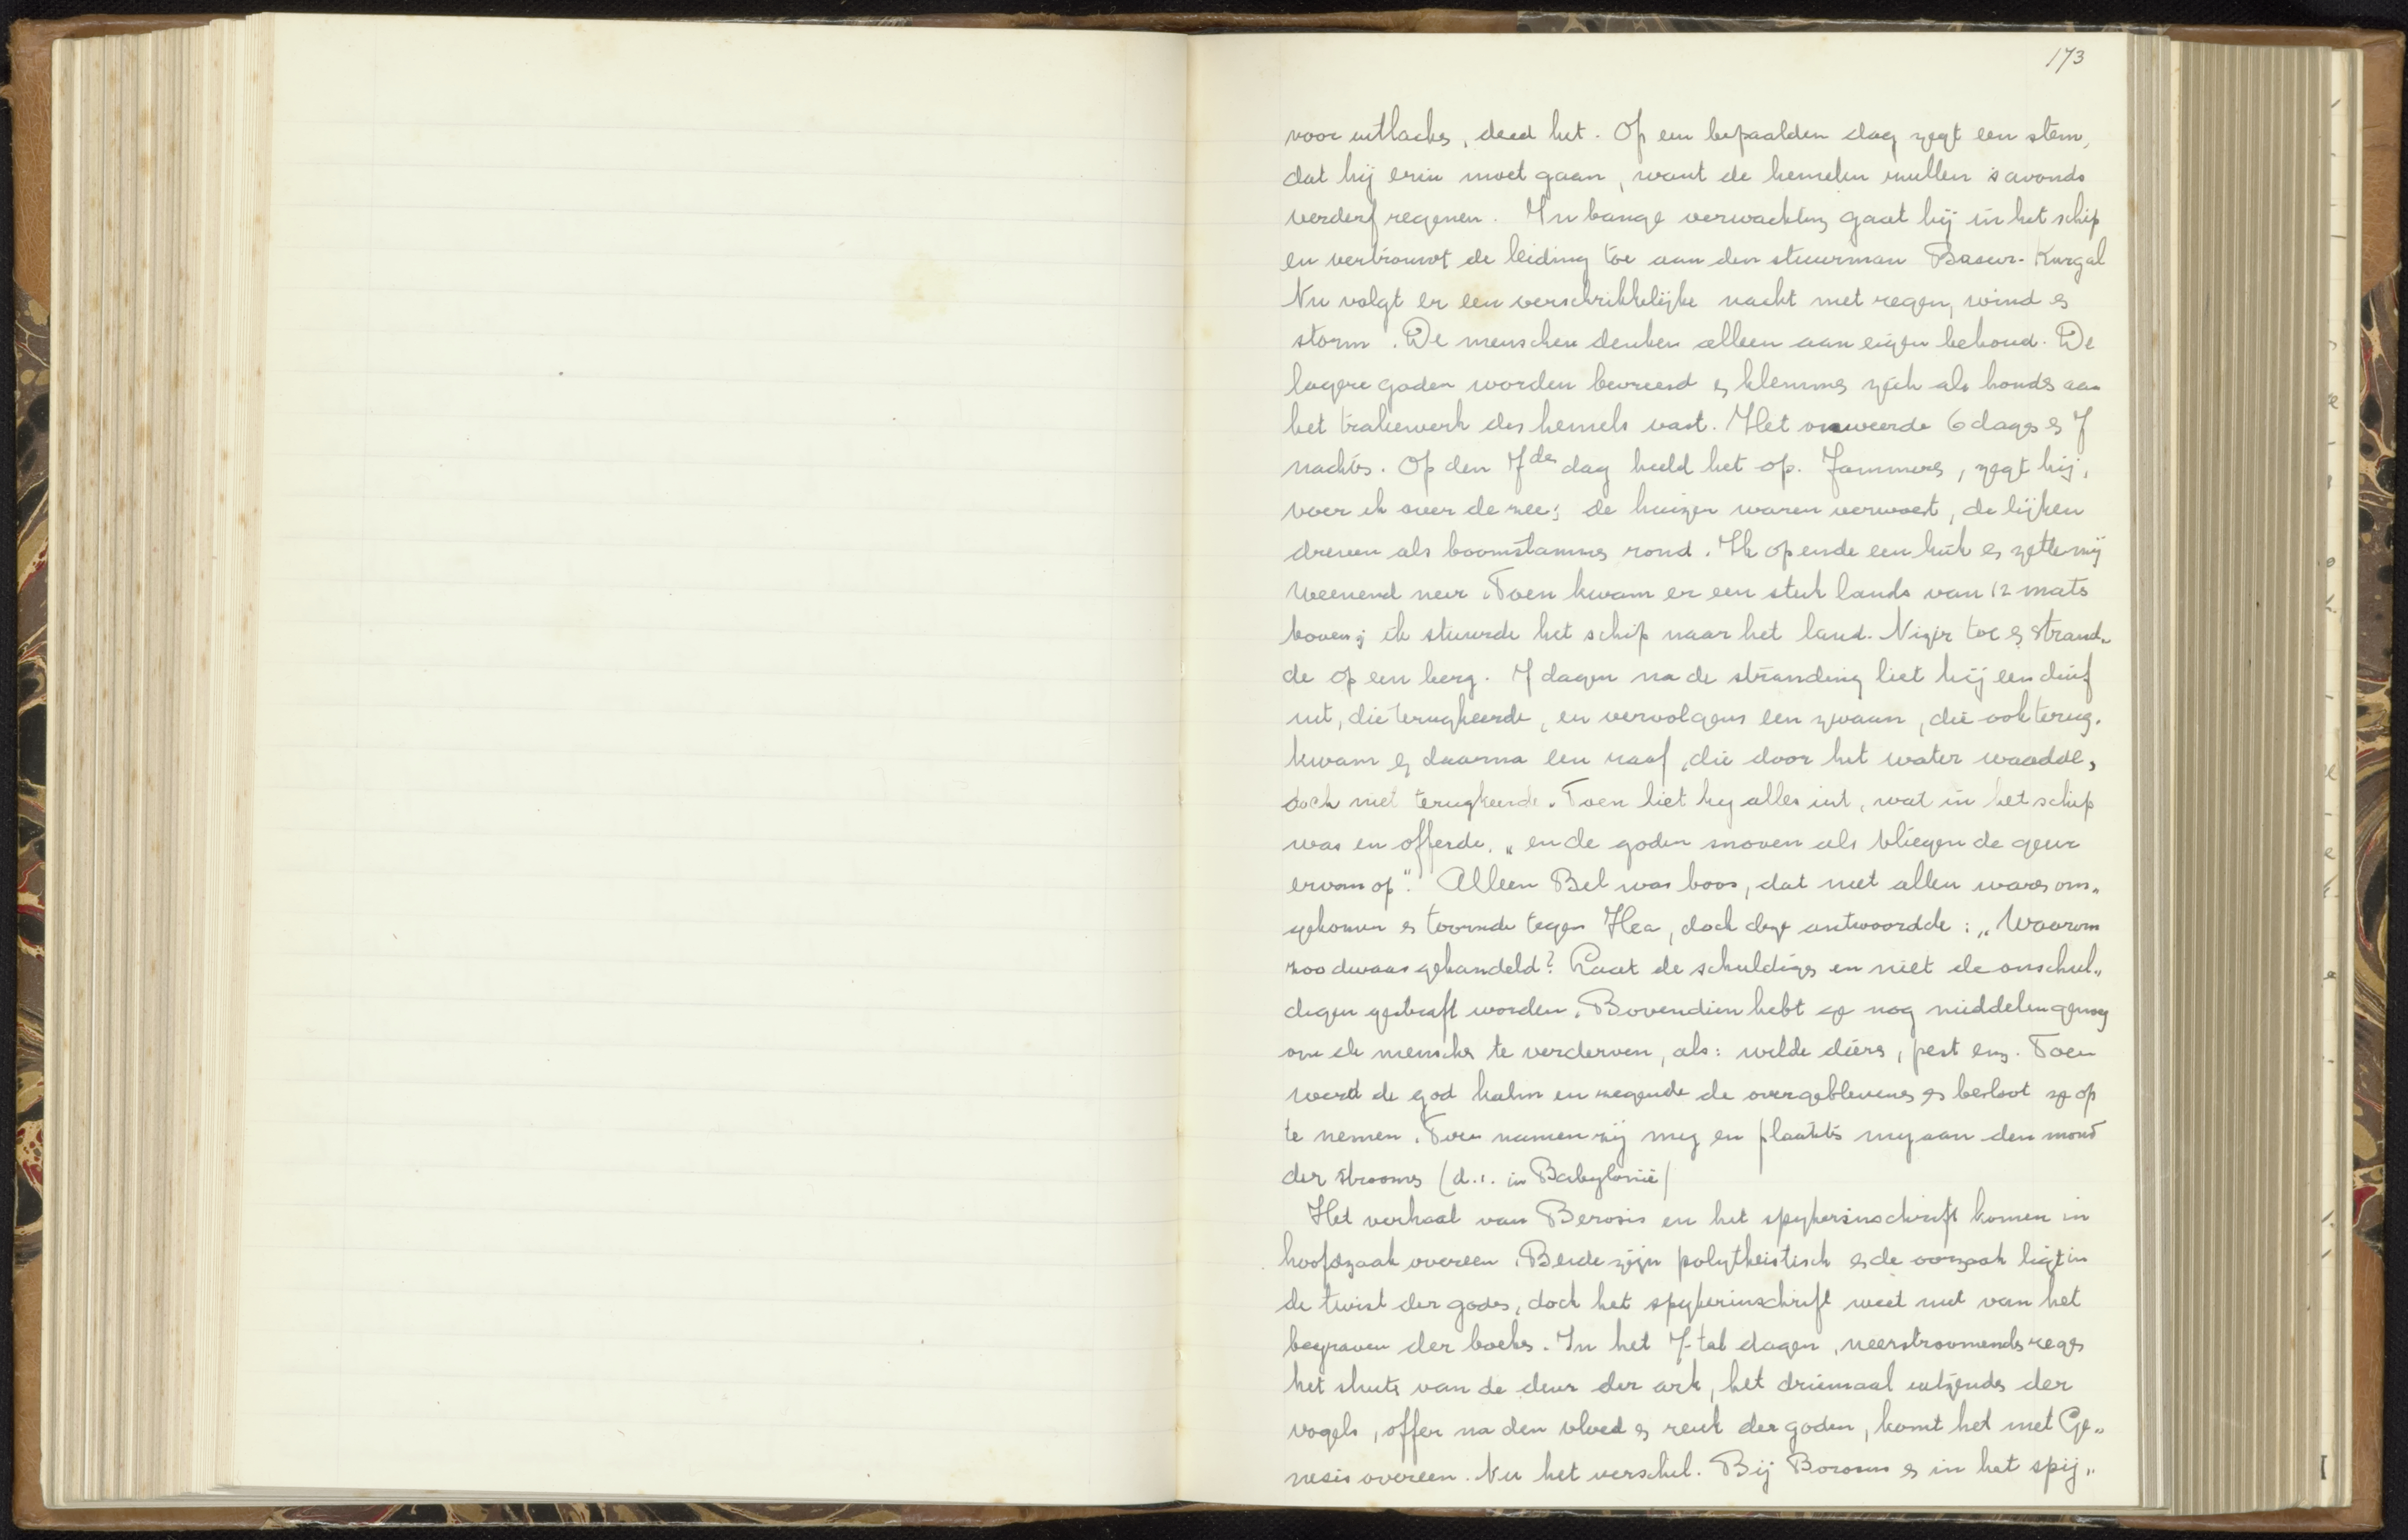 173
voor uitlachen, deed het. Op een bepaalden dag zegt een stem,
dat hij erin moet gaan, want de hemelen zullen 's avonds
verderf regenen. In bange verwachting gaat hij in het schip
en vertrouwt de leiding toe aan den stuurman Basur-Kurgal
Nu volgt er een verschrikkelijke nacht met regen, wind en
storm. De menschen denken alleen aan eigen behoud. De
lagere goden worden bevreesd en klemmen zich als honden aan
het traliewerk des hemels vast. Het onweerde 6 dagen en 7
nachten. Op den 7den dag hield het op. Jammeren, zegt hij,
voer ik over de zee; de huizen waren verwoest, de lijken
dreven als boomstammen rond. Ik opende een luik en zette mij
weenend neer. Toen kwam er een stuk lands van 12 mats
boven; ik stuurde het schip naar het land. Nizir toe en strand„
de op een berg. 7 dagen na de stranding liet hij een duif
uit, die terugkeerde, en vervolgens een zwaan, die ook terug„
kwam en daarna een raaf, die door het water waadde,
doch niet terugkeerde. Toen liet hy alles uit, wat in het schip
was en offerde, „en de goden snoven als vliegen de geur
ervan op". Alleen Bel was boos, dat niet allen waren om„
gekomen en toornde tegen Hea, doch deze antwoordde: „Waarom
zoo dwaas gehandeld? Laat de schuldigen en niet de onschul„
digen gestraft worden. Bovendien hebt ge nog middelen genoeg
om de menschen te verderven, als: wilde dieren, pest enz. Toen
werd de god kalm en zegende de overgeblevenen en besloot ze op
te nemen. Toen namen zij mij en plaatsten my aan den mond
der stroomen (d.i. in Babylonië)
Het verhaal van Berosis en het spykersinschrift komen in
hoofdzaak overeen. Beide zijn polytheistisch en de oorzaak ligt in
de twist der goden, doch het spykerinschrift weet niet van het
begraven der boeken. In het 7-tal dagen, neerstroomenden regen
het sluiten van de deur der ark, het driemaal uitzenden der
vogels, offer na den vloed en reuk der goden, komt het met Ge„
nesis overeen. Nu het verschil. Bij Borosus en in het spij„